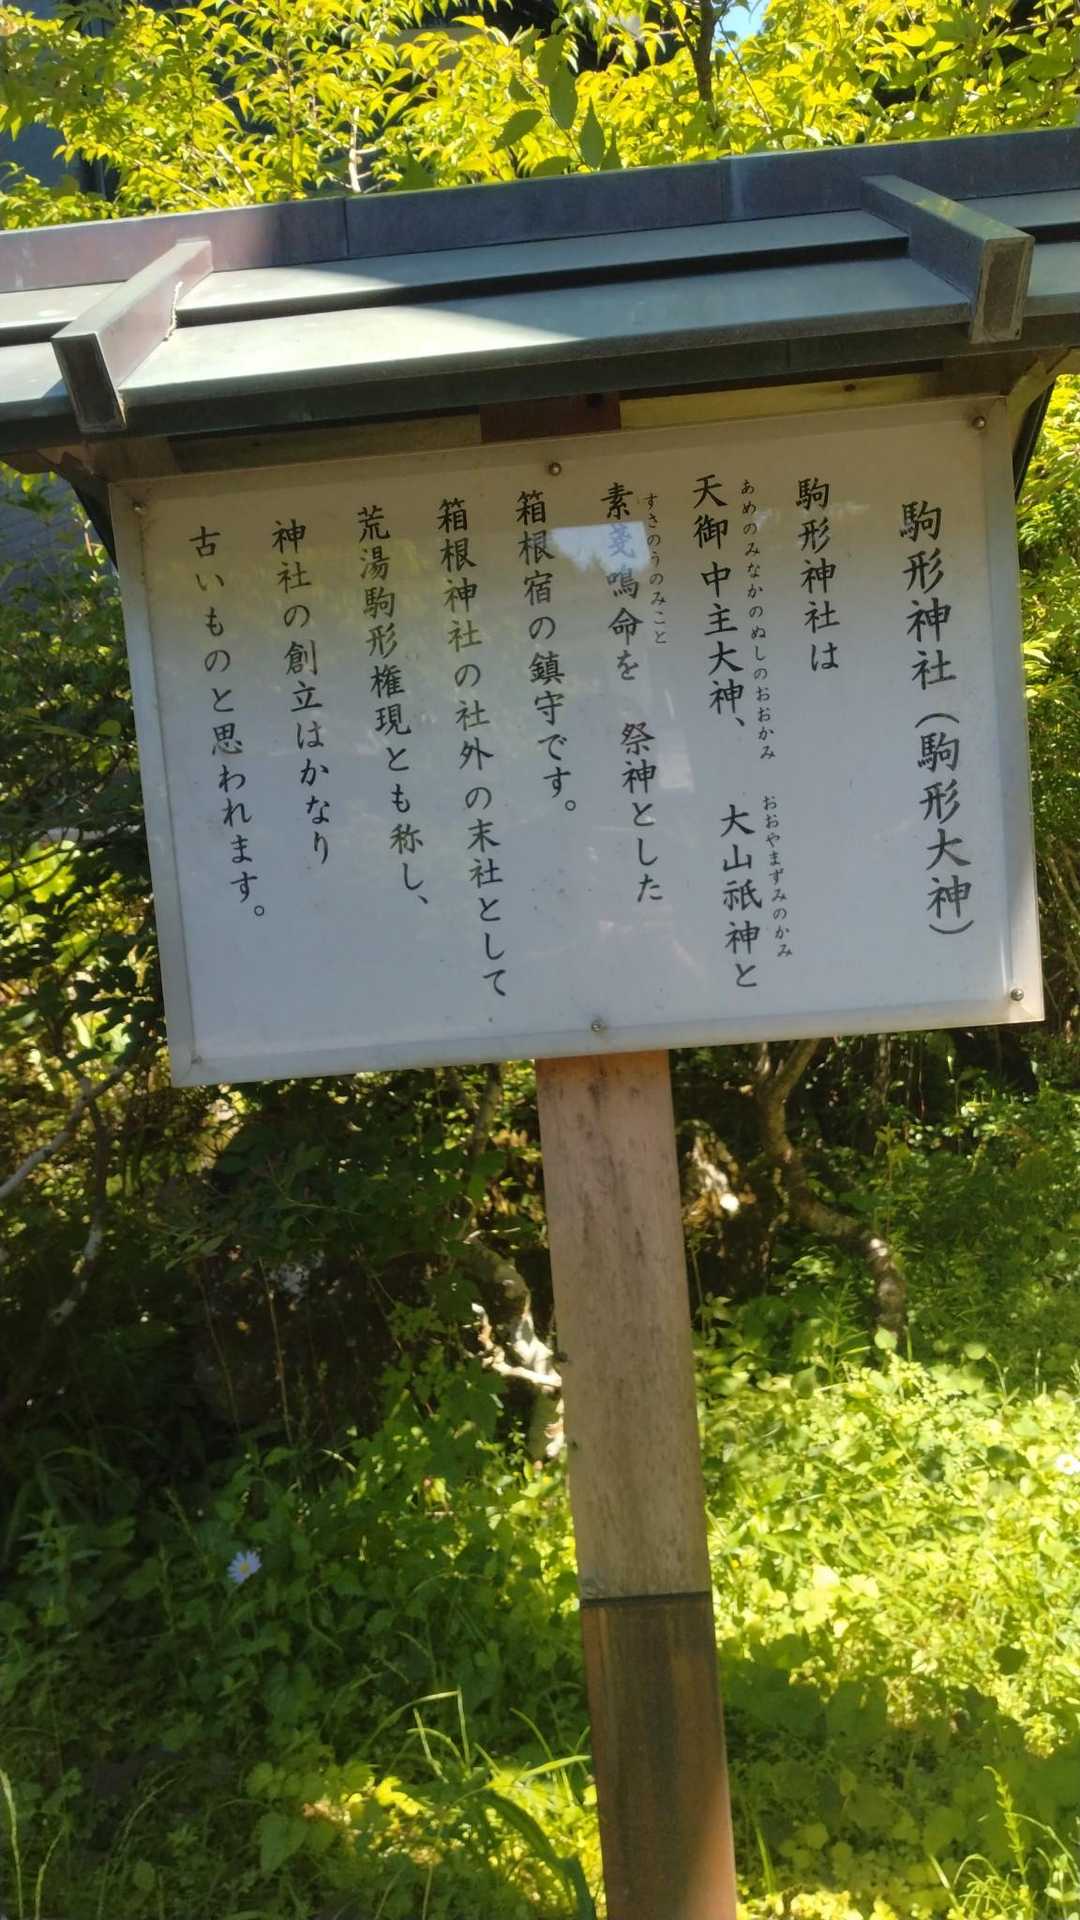 駒形神社（駒形大神）
駒形神社は
あめのみなかのぬしのおおかみ　おおやまずみのかみ
天御中主大神、大山祇神と
すさのうのみこと
素戔鳴命を　祭神とした
箱根宿の鎮守です。
箱根神社の社外の末社として
荒湯駒形権現とも称し、
神社の創立はかなり
古いものと思われます。